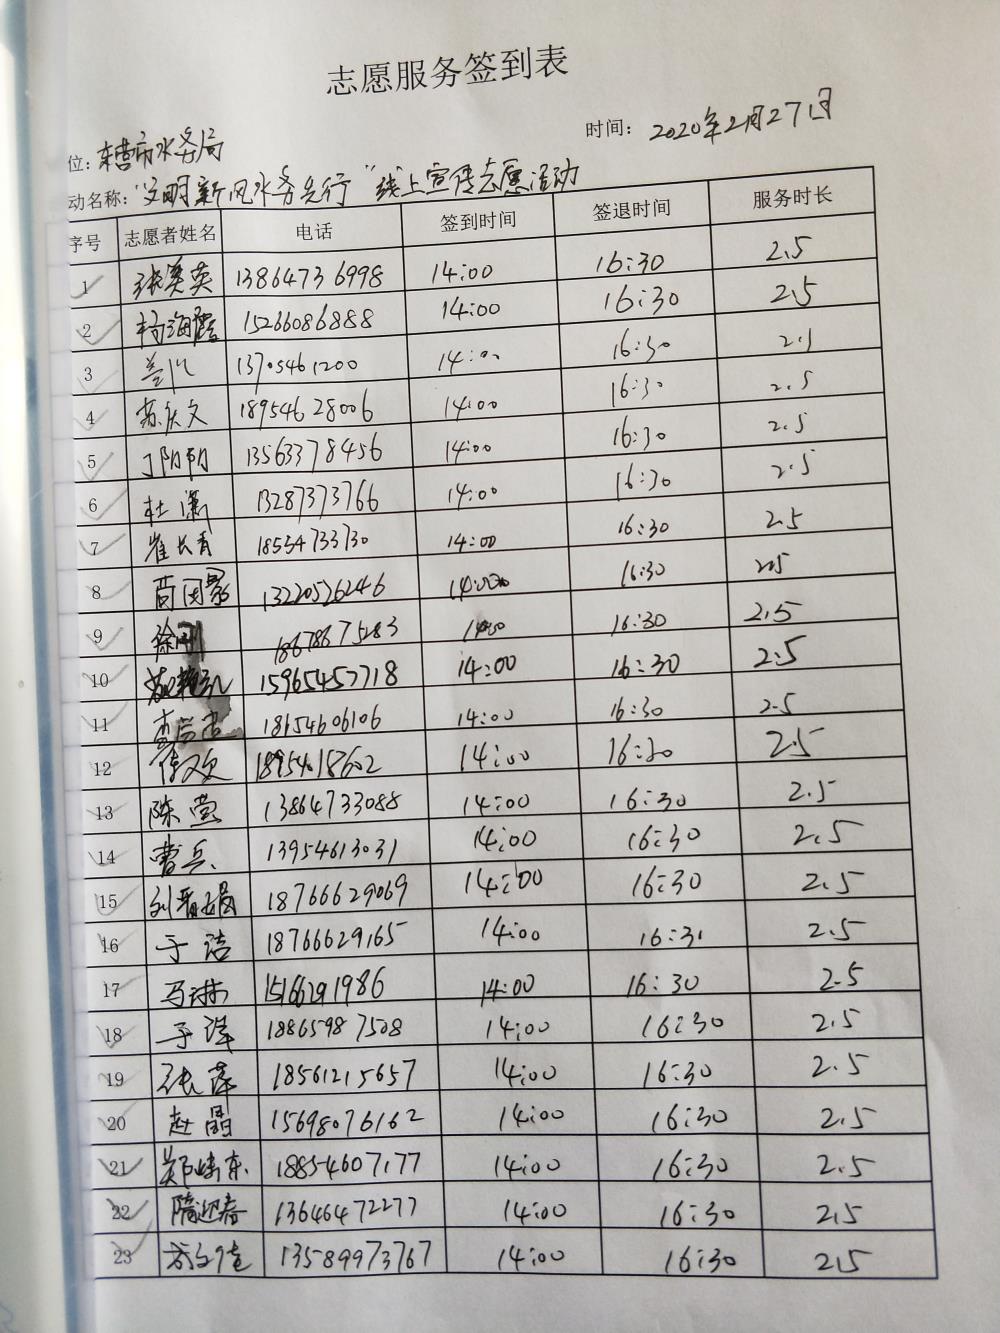 志愿服务签到表
时间：2020年2月27日
位：东营市水务局
动名称："文明新风水务先行"线上宣传志愿活动
序号 志愿者姓名 电话 签到时间 签退时间 服务时长
1 张英英 13864736998 14:00 16:30 2.5
2 杨海霞 15266086888 14:00 16:30 2.5
3 兰川 13705461200 14:00 16:30 2.5
4 苏庆文 18954628006 14:00 16:30 2.5
5 丁阴明 13563378456 14:00 16:30 2.5
6 杜潇 13287373766 14:00 16:30 2.5
7 崔长青 18554733730 14:00 16:30 2.5
8 13220526246 14:00 16:30 2.5
9 徐刚 18678675283 14:00 16:30 2.5
10 15965457718 14:00 16:30 2.5
11 18654606106 14:00 16:30 2.5
12 18954018602 14:00 16:30 2.5
13 陈莹 13864733088 14:00 16:30 2.5
14 曹兵 13954613031 14:00 16:30 2.5
15 刘晋娟 18766629069 14:00 16:30 2.5
16 于洁 18766629165 14:00 16:31 2.5
17 马琳 15166291986 14:00 16:30 2.5
18 于洋 18865987508 14:00 16:30 2.5
19 张萍 18561215657 14:00 16:30 2.5
20 赵晶 15698076162 14:00 16:30 2.5
21 郑炜东 18854607177 14:00 16:30 2.5
22 隋迎春 13646472277 14:00 16:30 2.5
23 13589973767 14:00 16:30 2.5